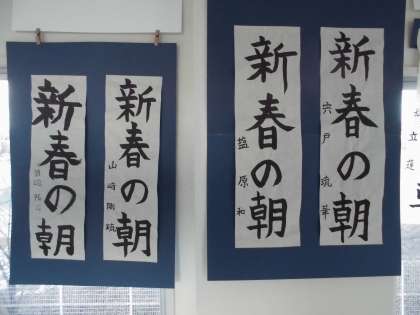 新春の朝
宍戸琉華
新春の朝
塩原和
新春の朝
山崎剛琉
新春の朝